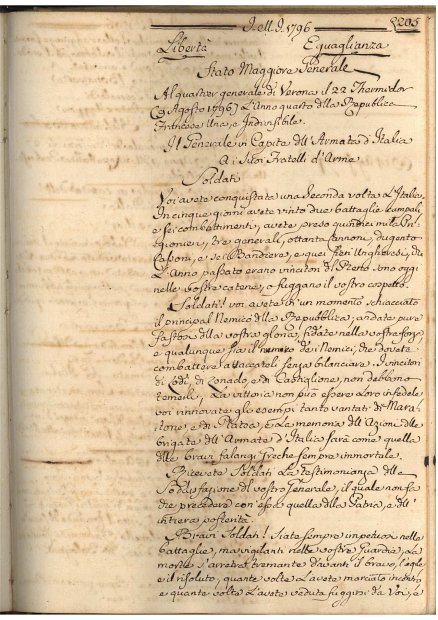 Dell' A. 1796 2205
Libertà Eguaglianza
Stato Maggiore Generale
Al quartier generale di Verona il 22 Thermidor
(9 Agosto 1796) L'Anno quarto della Repubblica
Francese Una, e Indivisibile.
Il Generale in Capite dell' Armata d'Italia
A i Suoi Fratelli d'Arme
Soldati
Voi avete conquistata una seconda volta l'Italia.
In cinque giorni avete vinto due battaglie campali
e sei combattimenti, avete preso quindici mila Pri-
gionieri, tre generali, ottanta cannoni, dugento
Cassoni, e sei Bandiere, e quei fieri Ungheresi, che
l'Anno passato erano vincitori del sono oggi
nelle vostre catene, o fuggano il vostro cospetto.
Soldati! voi avete in un momento schiacciato
il principal Nemico della Repubblica; andate pure
fastosi della vostra gloria, fidate nella vostra forza
e qualunque sia il numero dei Nemici, che dovete
combattere attaccateli senza bilanciare. I vincitori
di Lodi, di Lonado, e di Castiglione, non debbono
temerli, La vittoria non può essere loro infedele
voi rinnovate gli esempi tanto vantati di Mara-
tone, e di Platea, e La memoria dell' Azioni delle
brigate dell' Armate d'Italia sarà come quella
delle bravi falangi Greche sempre immortale.
Ricevete Soldati La testimonianza della
Soddisfazione del vostro Generale, il quale non fa
che precedere con essa quella della Patria, e dell'
intiera posterità.
Bravi Soldati! Siate sempre impetuosi nelle
battaglie, ma vigilanti nelle vostre Guardie, La
morte s'arretra tremante davanti il bravo,
e il risoluto, quante volte L'avete marciato incontro
e quante volte L'avete veduta fuggire da Voi, e